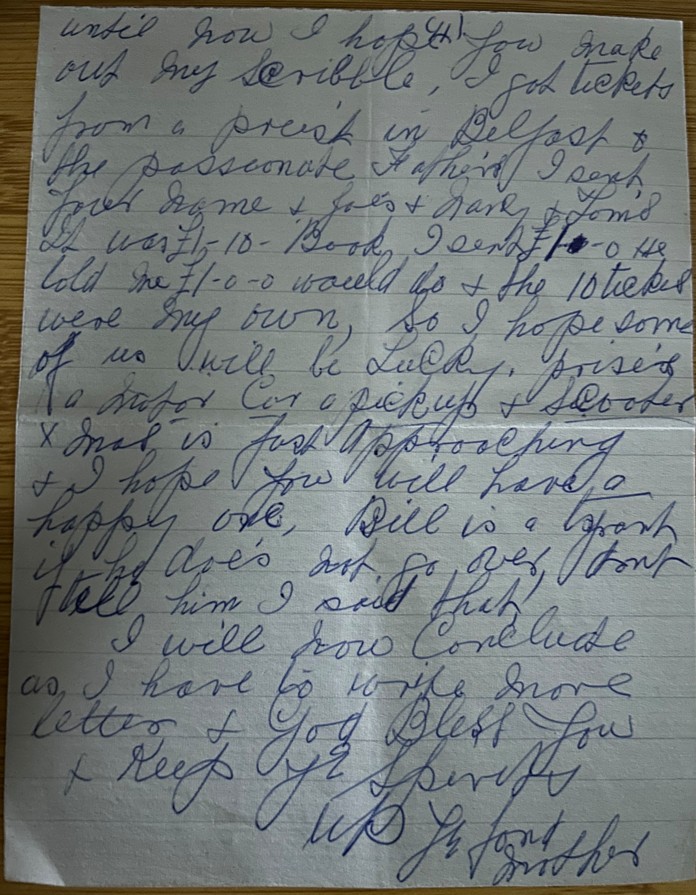 until now I hope you make
out my Scribble, I got tickets
from a preist in Belfast &
the passionate Fathers I sent
your name & Joe's + Mary & Tom's
It was £1-10- Book, I sent £1-0-0 He
told me £1-0-0 would do & the 10 tickets
were my own, So I hope some
of us will be Lucky. prise's
a motor Car a pickup & Scooter
X mas is fast Approaching
& I hope you will have a
happy one, Bill is a
if he does not go over, Dont
tell him I said that,
I will now Conclude
as I have to write more
letters & God Bless You
& Keep Yr Spirits
UP Yr fond
Mother